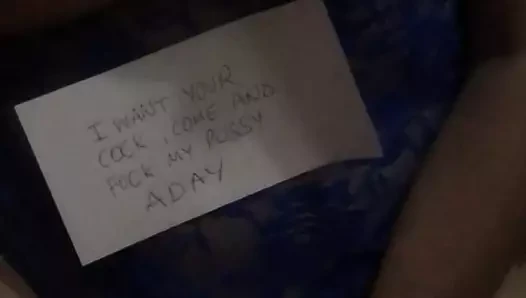 I WANT YOUR
COCK, COME AND
FUCK MY PUSSY
ADAY